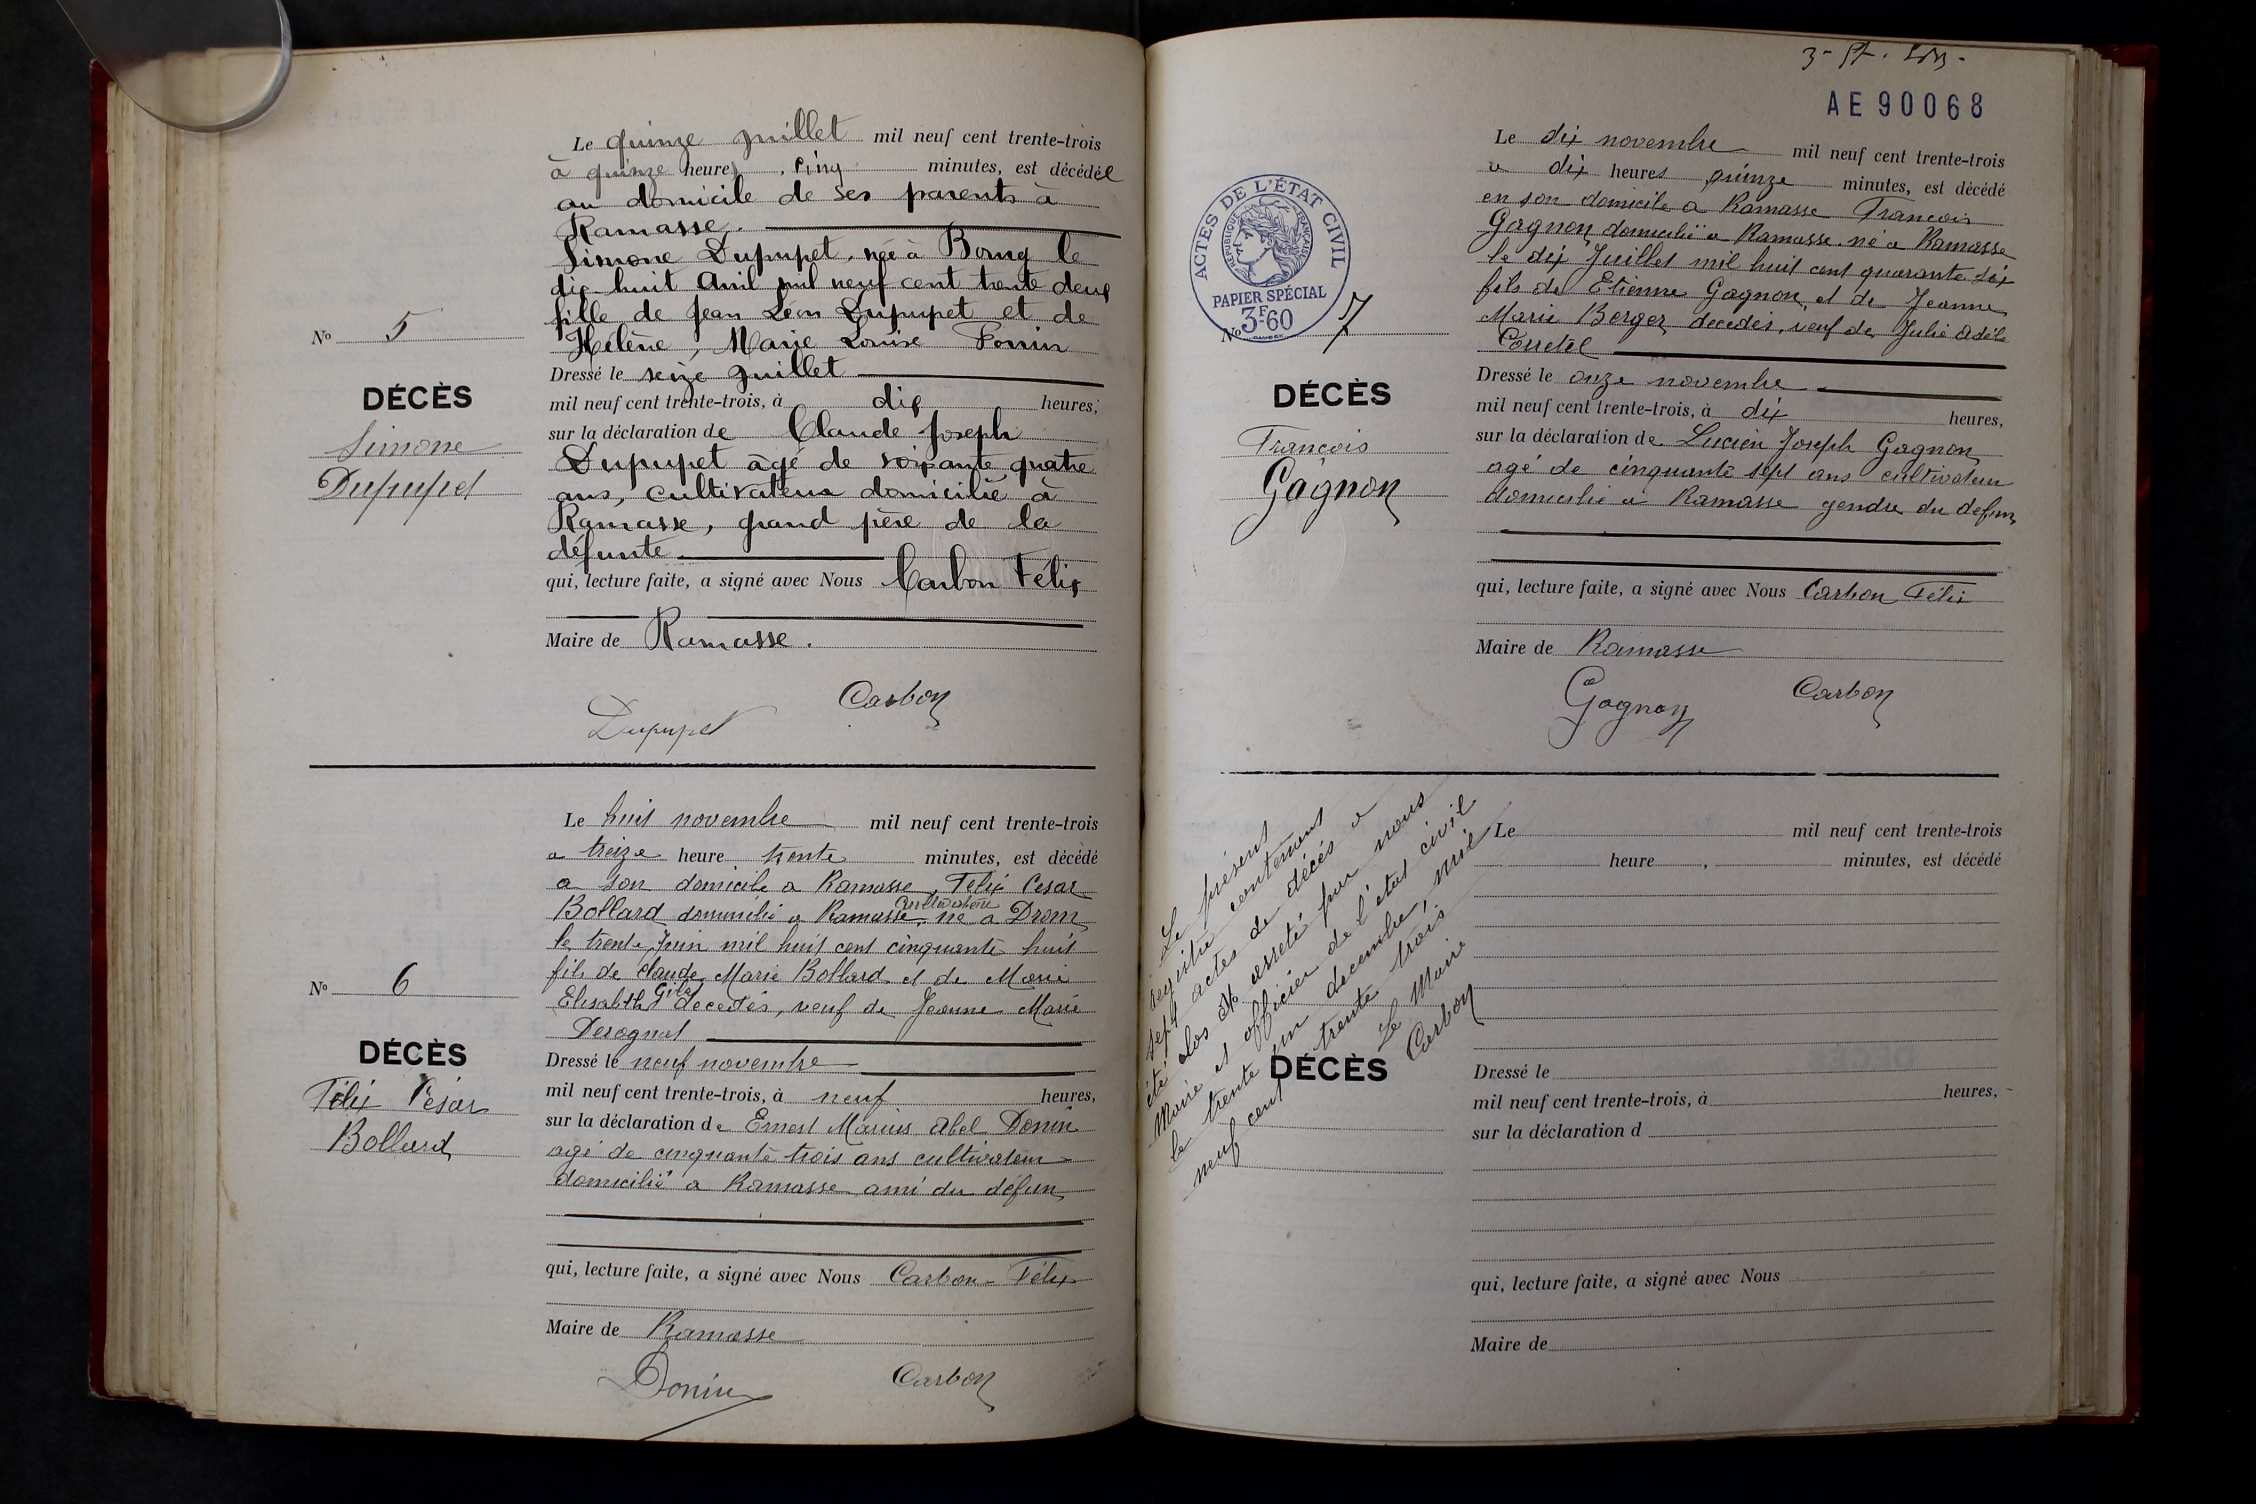 Le quinze juillet mil neuf cent trente-trois
à quinze heures, cinq minutes, est décédée
au domicile de ses parents à
Ramasse.
Simone Dupupet, née à Bourg le
dix huit Avril mil neuf cent trente deux
fille de Jean Léon Dupupet et de
Hélène, Marie Louise
Dressé le seize juillet
mil neuf cent trente-trois, à dix heures,
sur la déclaration de Claude Joseph
Dupupet âgé de soixante quatre
ans, cultivateur domicilié à
Ramasse, grand père de la
défunte
qui, lecture faite, a signé avec Nous Carbon Félix
Maire de Ramasse.
Dupupet Carbon
No 5
DÉCÈS
Simone
Dupupet
Le huit novembre mil neuf cent trente-trois
a treize heure trente minutes, est décédé
a son domicile a Ramasse, Félix Cesar
cultivateur
Bollard domicilié a Ramasse, né a Drom
le trente Juin mil huit cent cinquante huit
fils de claude Marie Bollard et de Marie
Elisabeth decedés, veuf de Jeanne Marie
Derognat
Dressé le neuf novembre
mil neuf cent trente-trois, à neuf heures,
sur la déclaration de Ernest Marius Abel Donin
agé de cinquante trois ans cultivateur
domicilié a Ramasse ami du défun
qui, lecture faite, a signé avec Nous Carbon Félix
Maire de Ramasse
Donin Carbon
No 6
DÉCÈS
Félix Césár
Bollard
AE 90068
ACTES DE L'ÉTAT CIVIL
RÉPUBLIQUE FRANÇAISE
PAPIER SPÉCIAL
3F60
No 7
DÉCÈS
François
Gagnon
Le dix novembre mil neuf cent trente-trois
a dix heures quinze minutes, est décédé
en son domicile a Ramasse Francois
Gagnon domicilié a Ramasse né a Ramasse
le dix Juillet mil huit cent quarante six
fils de Etienne Gagnon et de Jeanne
Marie Berger decedés, veuf de Julie Adèle
Dressé le onze novembre
mil neuf cent trente-trois, à dix heures,
sur la déclaration de Lucien Joseph Gagnon
agé de cinquante sept ans cultivateur
domicilié a Ramasse gendre du defun
qui, lecture faite, a signé avec Nous Carbon Félix
Maire de Ramasse
Gagnon Carbon
Le présent
registre contenant
sept actes de décés a
été clos et arreté par nous
Maire et officier de l'état civil
le trente un decembre, mil
neuf cent trente trois
Le Maire
Carbon
DÉCÈS
Le mil neuf cent trente-trois
heure , minutes, est décédé
Dressé le
mil neuf cent trente-trois, à heures,
sur la déclaration d
qui, lecture faite, a signé avec Nous
Maire de